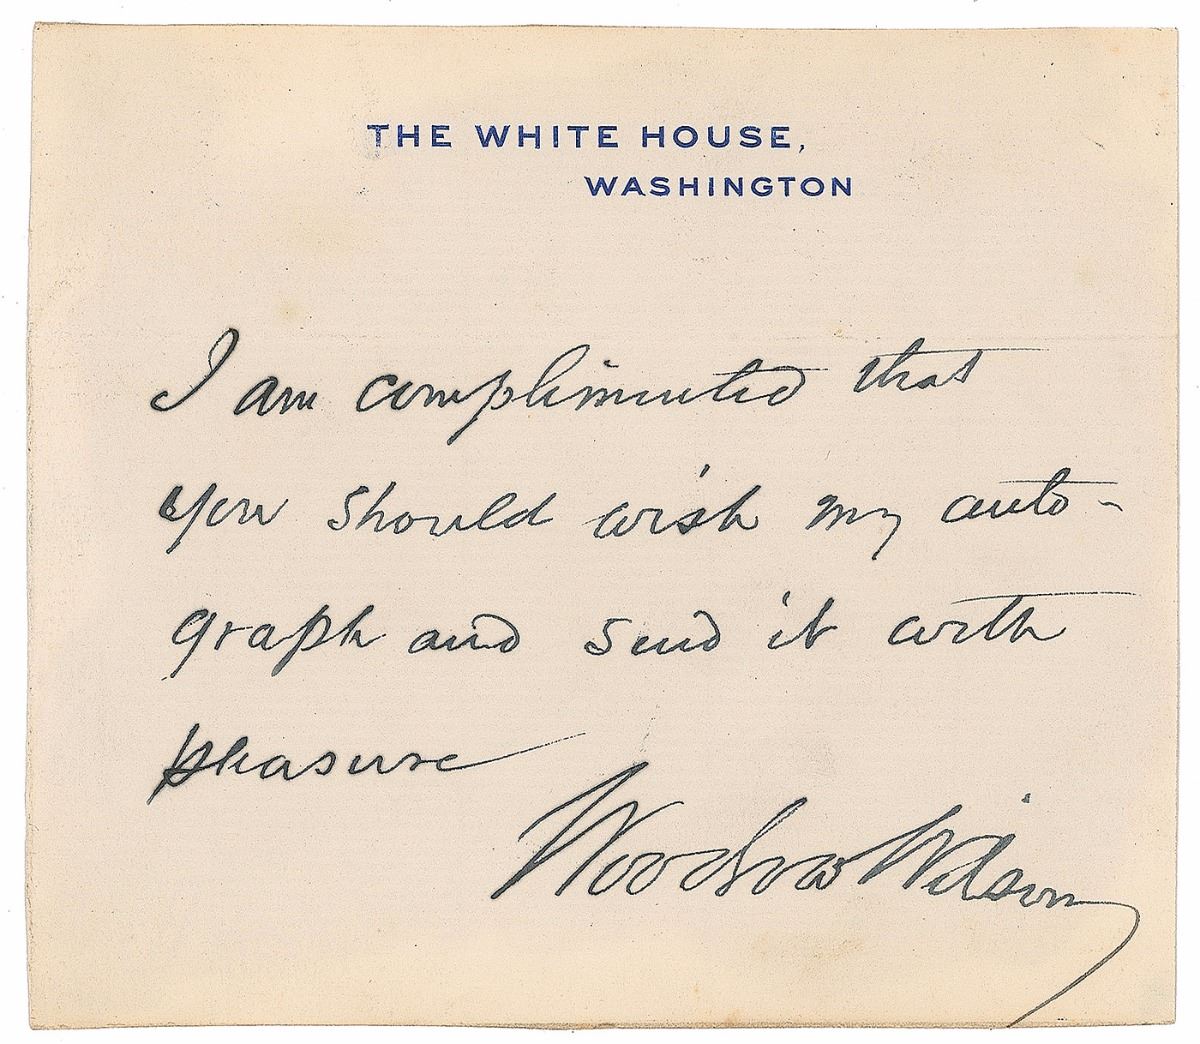 THE WHITE HOUSE,
WASHINGTON
I am complimented that
you should wish my auto-
graph and send it with
pleasure
Woodrow Wilson